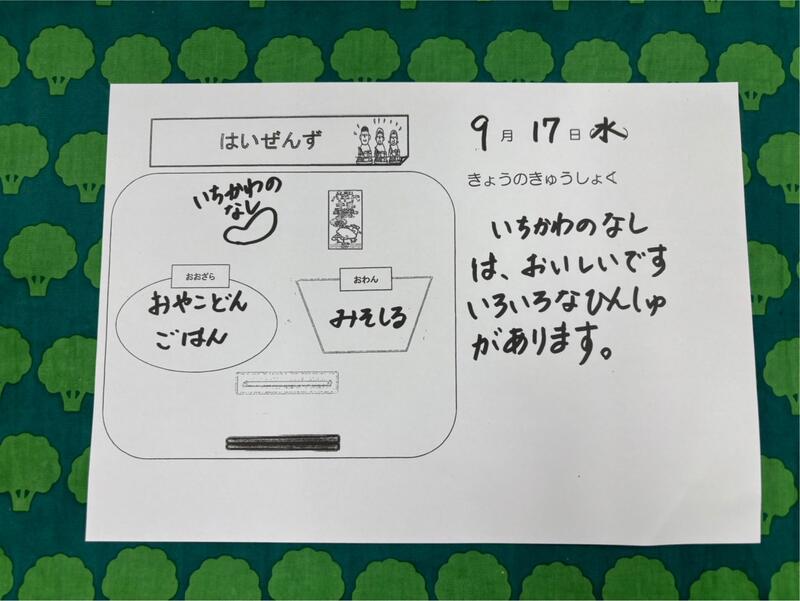 はいぜんず
いちかわの
なし
おおざら
おやこどん
ごはん
おわん
みそしる
9月17日水
きょうのきゅうしょく
いちかわのなし
は、おいしいです
いろいろなひんしゅ
があります。